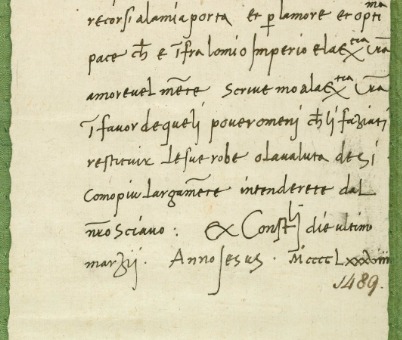 recorsi alamia porta et p lamore et optima
pace ch e tra lo mio Imperio e la Extia Vra
amorevelmēte Scrivemo a la Extia Vra
ī favor de queli poveromenj ch li faziati
restituir le sue robe o la valuta de si
Como piu largamēte intenderete dal
nro Sciavo : Ex Constlj die ultim
marzij . Anno Jesus . MCCCCLxxxviiij
1489.